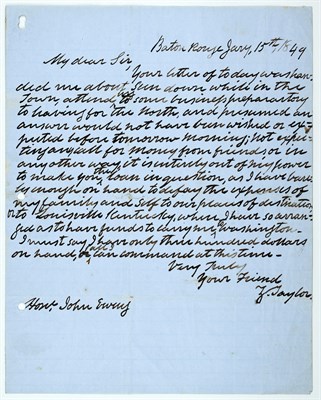 Baton Rouge Jany, 15th 1849
My dear Sir
Your letter of today was han-
ded me about Sun down while in the
Town, attending to some business preparatory
to leaving for the North, and presumed an
answer would not have been wished or ex-
pected before tomorrow morning; Not expec-
ting a call for Money from friends or in
any other way, it is entirely out of my power
to make you the loan in question, as I have bare-
ly enough on hand to defray the expenses of
my family and Self to our places of destination
or to Louisville Kentucky, where I have so arran-
ged as to have funds to carry me to Washington-
I must say I have only three hundred dollars
on hand, or can command at this time-
Very Truly
Your Friend
Z. Taylor
Honl. John Ewing